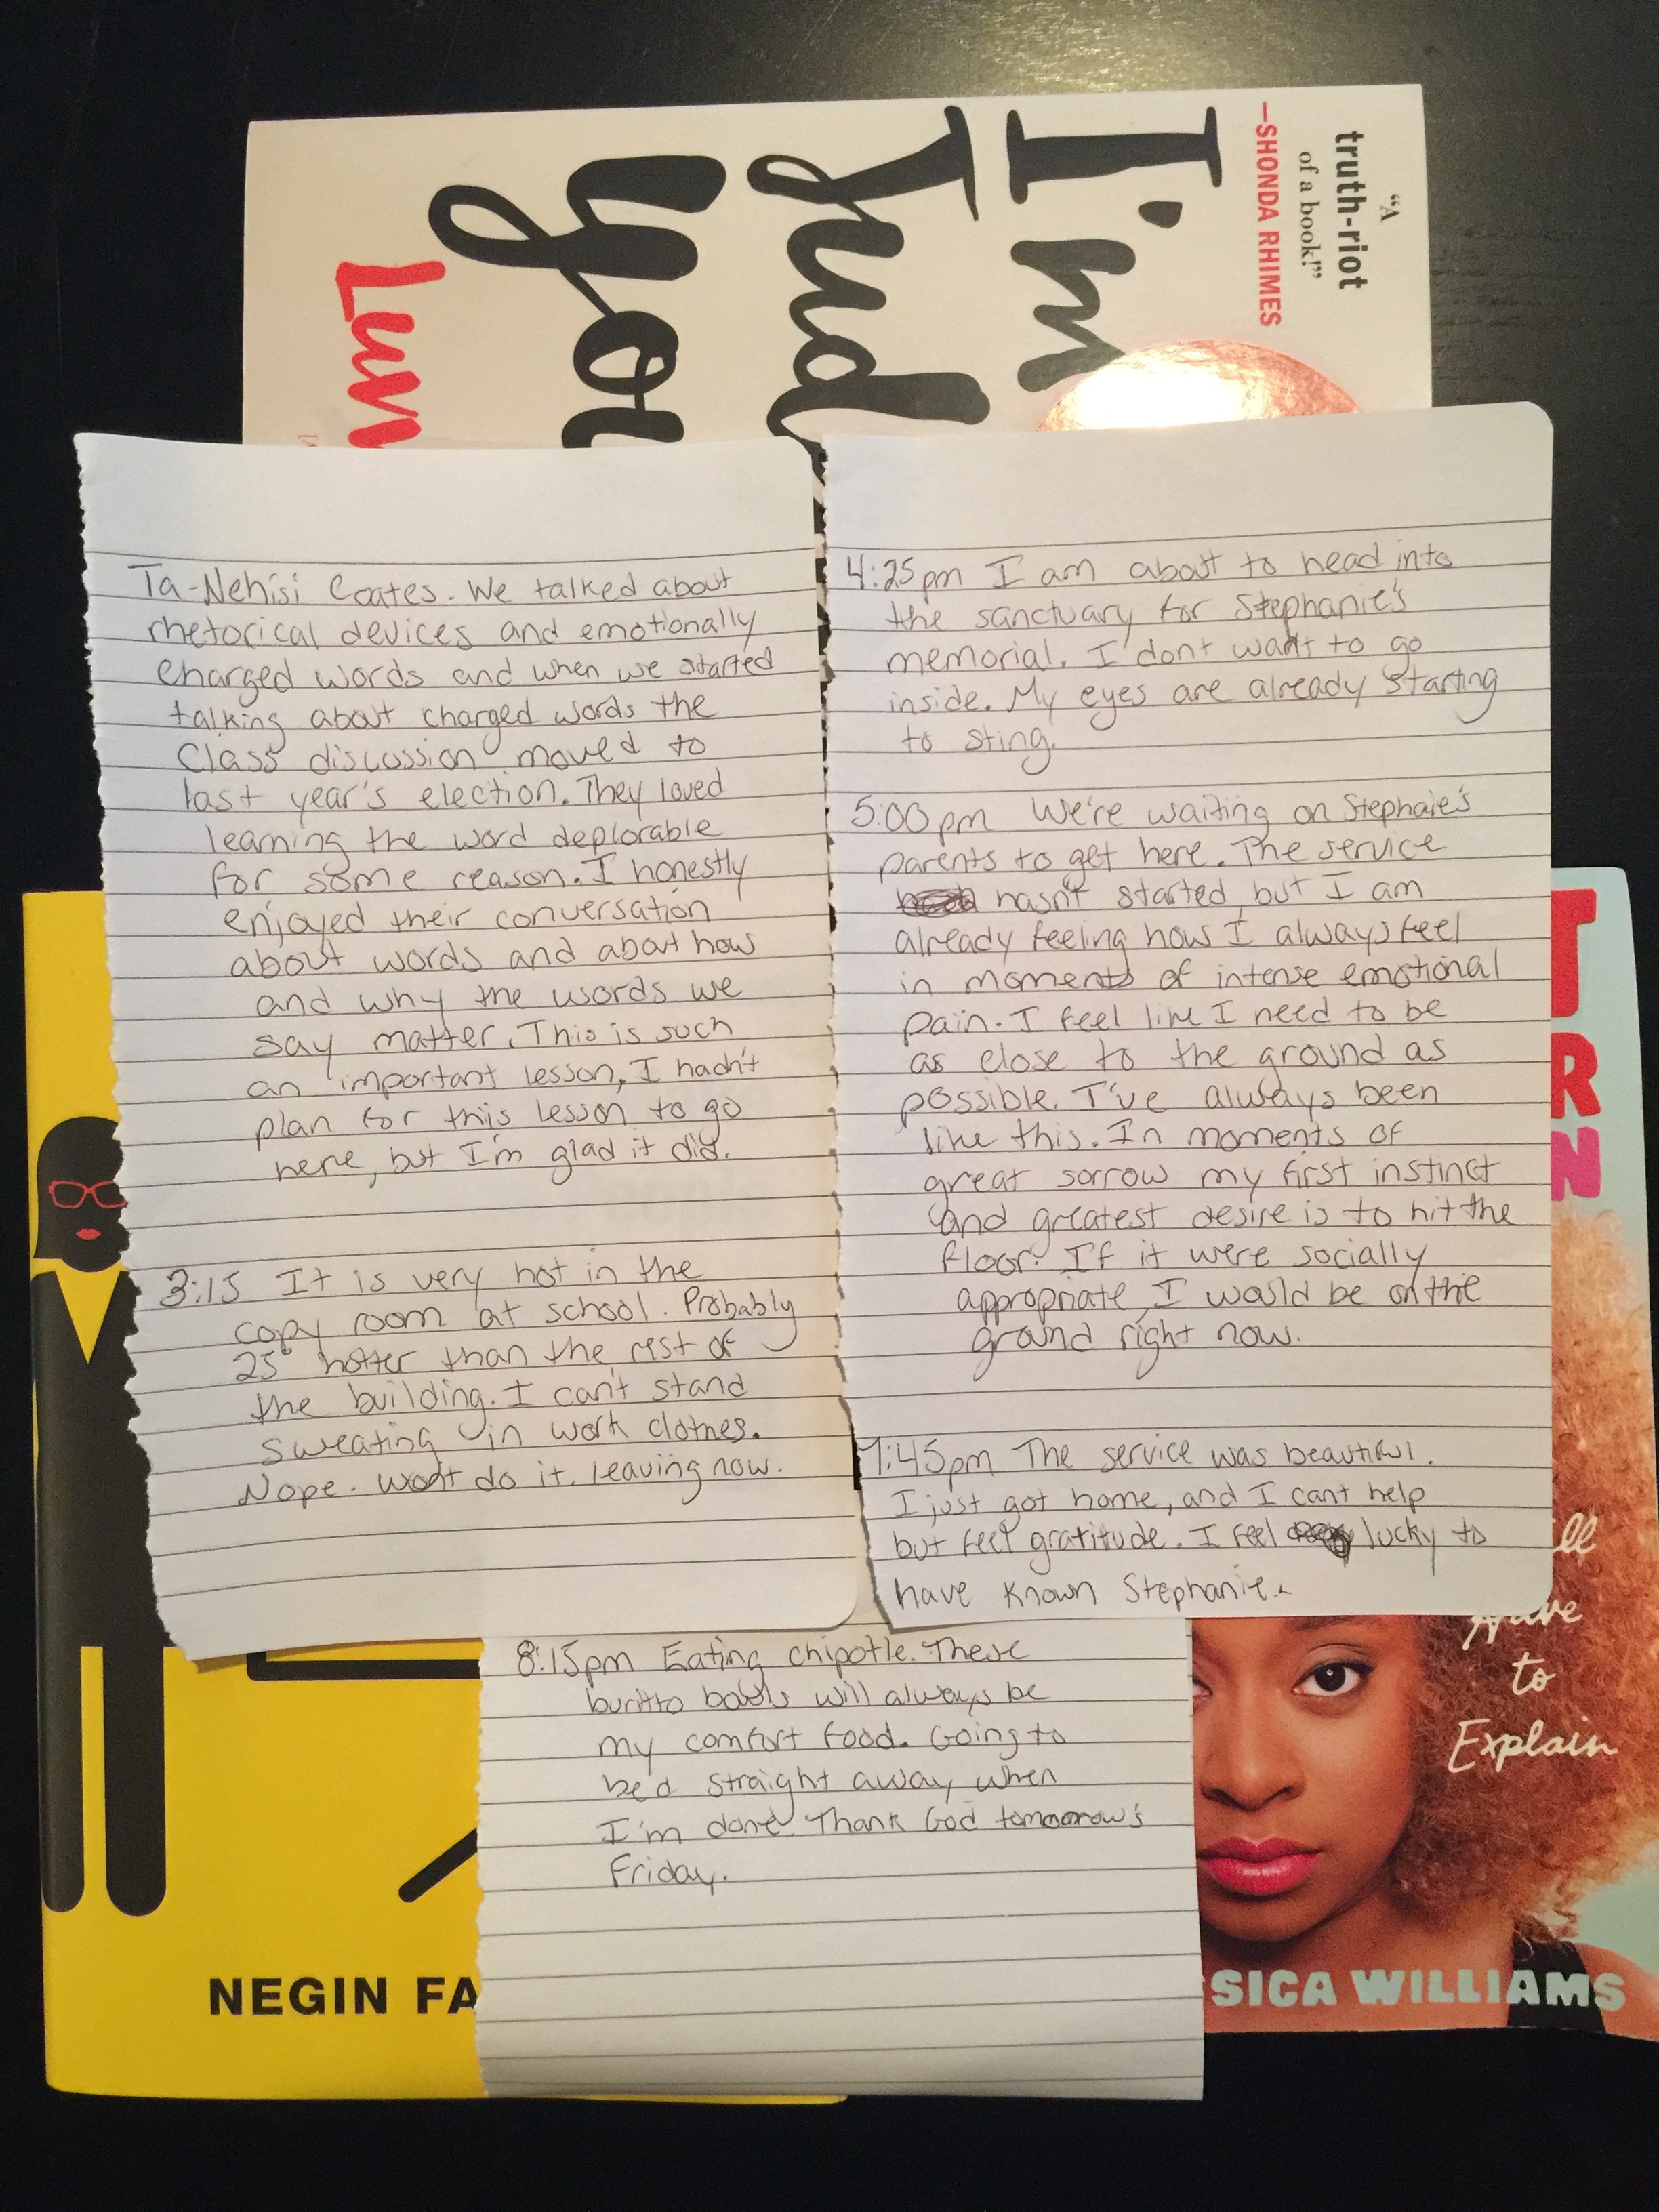 "A
truth-riot
of a book!"
—SHONDA RHIMES
I'm
Jud
you
Luv
Ta-Nehisi Coates. We talked about
rhetorical devices and emotionally
charged words and when we started
talking about charged words the
class discussion moved to
last year's election. They loved
learning the word deplorable
for some reason. I honestly
enjoyed their conversation
about words and about how
and why the words we
say matter. This is such
an important lesson, I hadn't
plan for this lesson to go
here, but I'm glad it did.
3:15 It is very hot in the
copy room at school. Probably
25° hotter than the rest of
the building. I can't stand
sweating in work clothes.
Nope. Won't do it. leaving now.
4:25pm I am about to head into
the sanctuary for Stephanie's
memorial. I don't want to go
inside. My eyes are already starting
to sting.
5:00pm We're waiting on Stephaie's
parents to get here. The service
hasn't started, but I am
already feeling how I always feel
in moments of intense emotional
pain. I feel like I need to be
as close to the ground as
possible. I've always been
like this. In moments of
great sorrow my first instinct
and greatest desire is to hit the
floor. If it were socially
appropriate, I would be on the
ground right now.
7:45pm The service was beautiful.
I just got home, and I cant help
but feel gratitude. I feel lucky to
have known Stephanie.
8:15pm Eating chipotle. These
burrito bowls will always be
my comfort food. Going to
bed straight away when
I'm done. Thank God tomorrow's
Friday.
NEGIN FA
T
R
N
ll
Have
to
Explain
SICA WILLIAMS